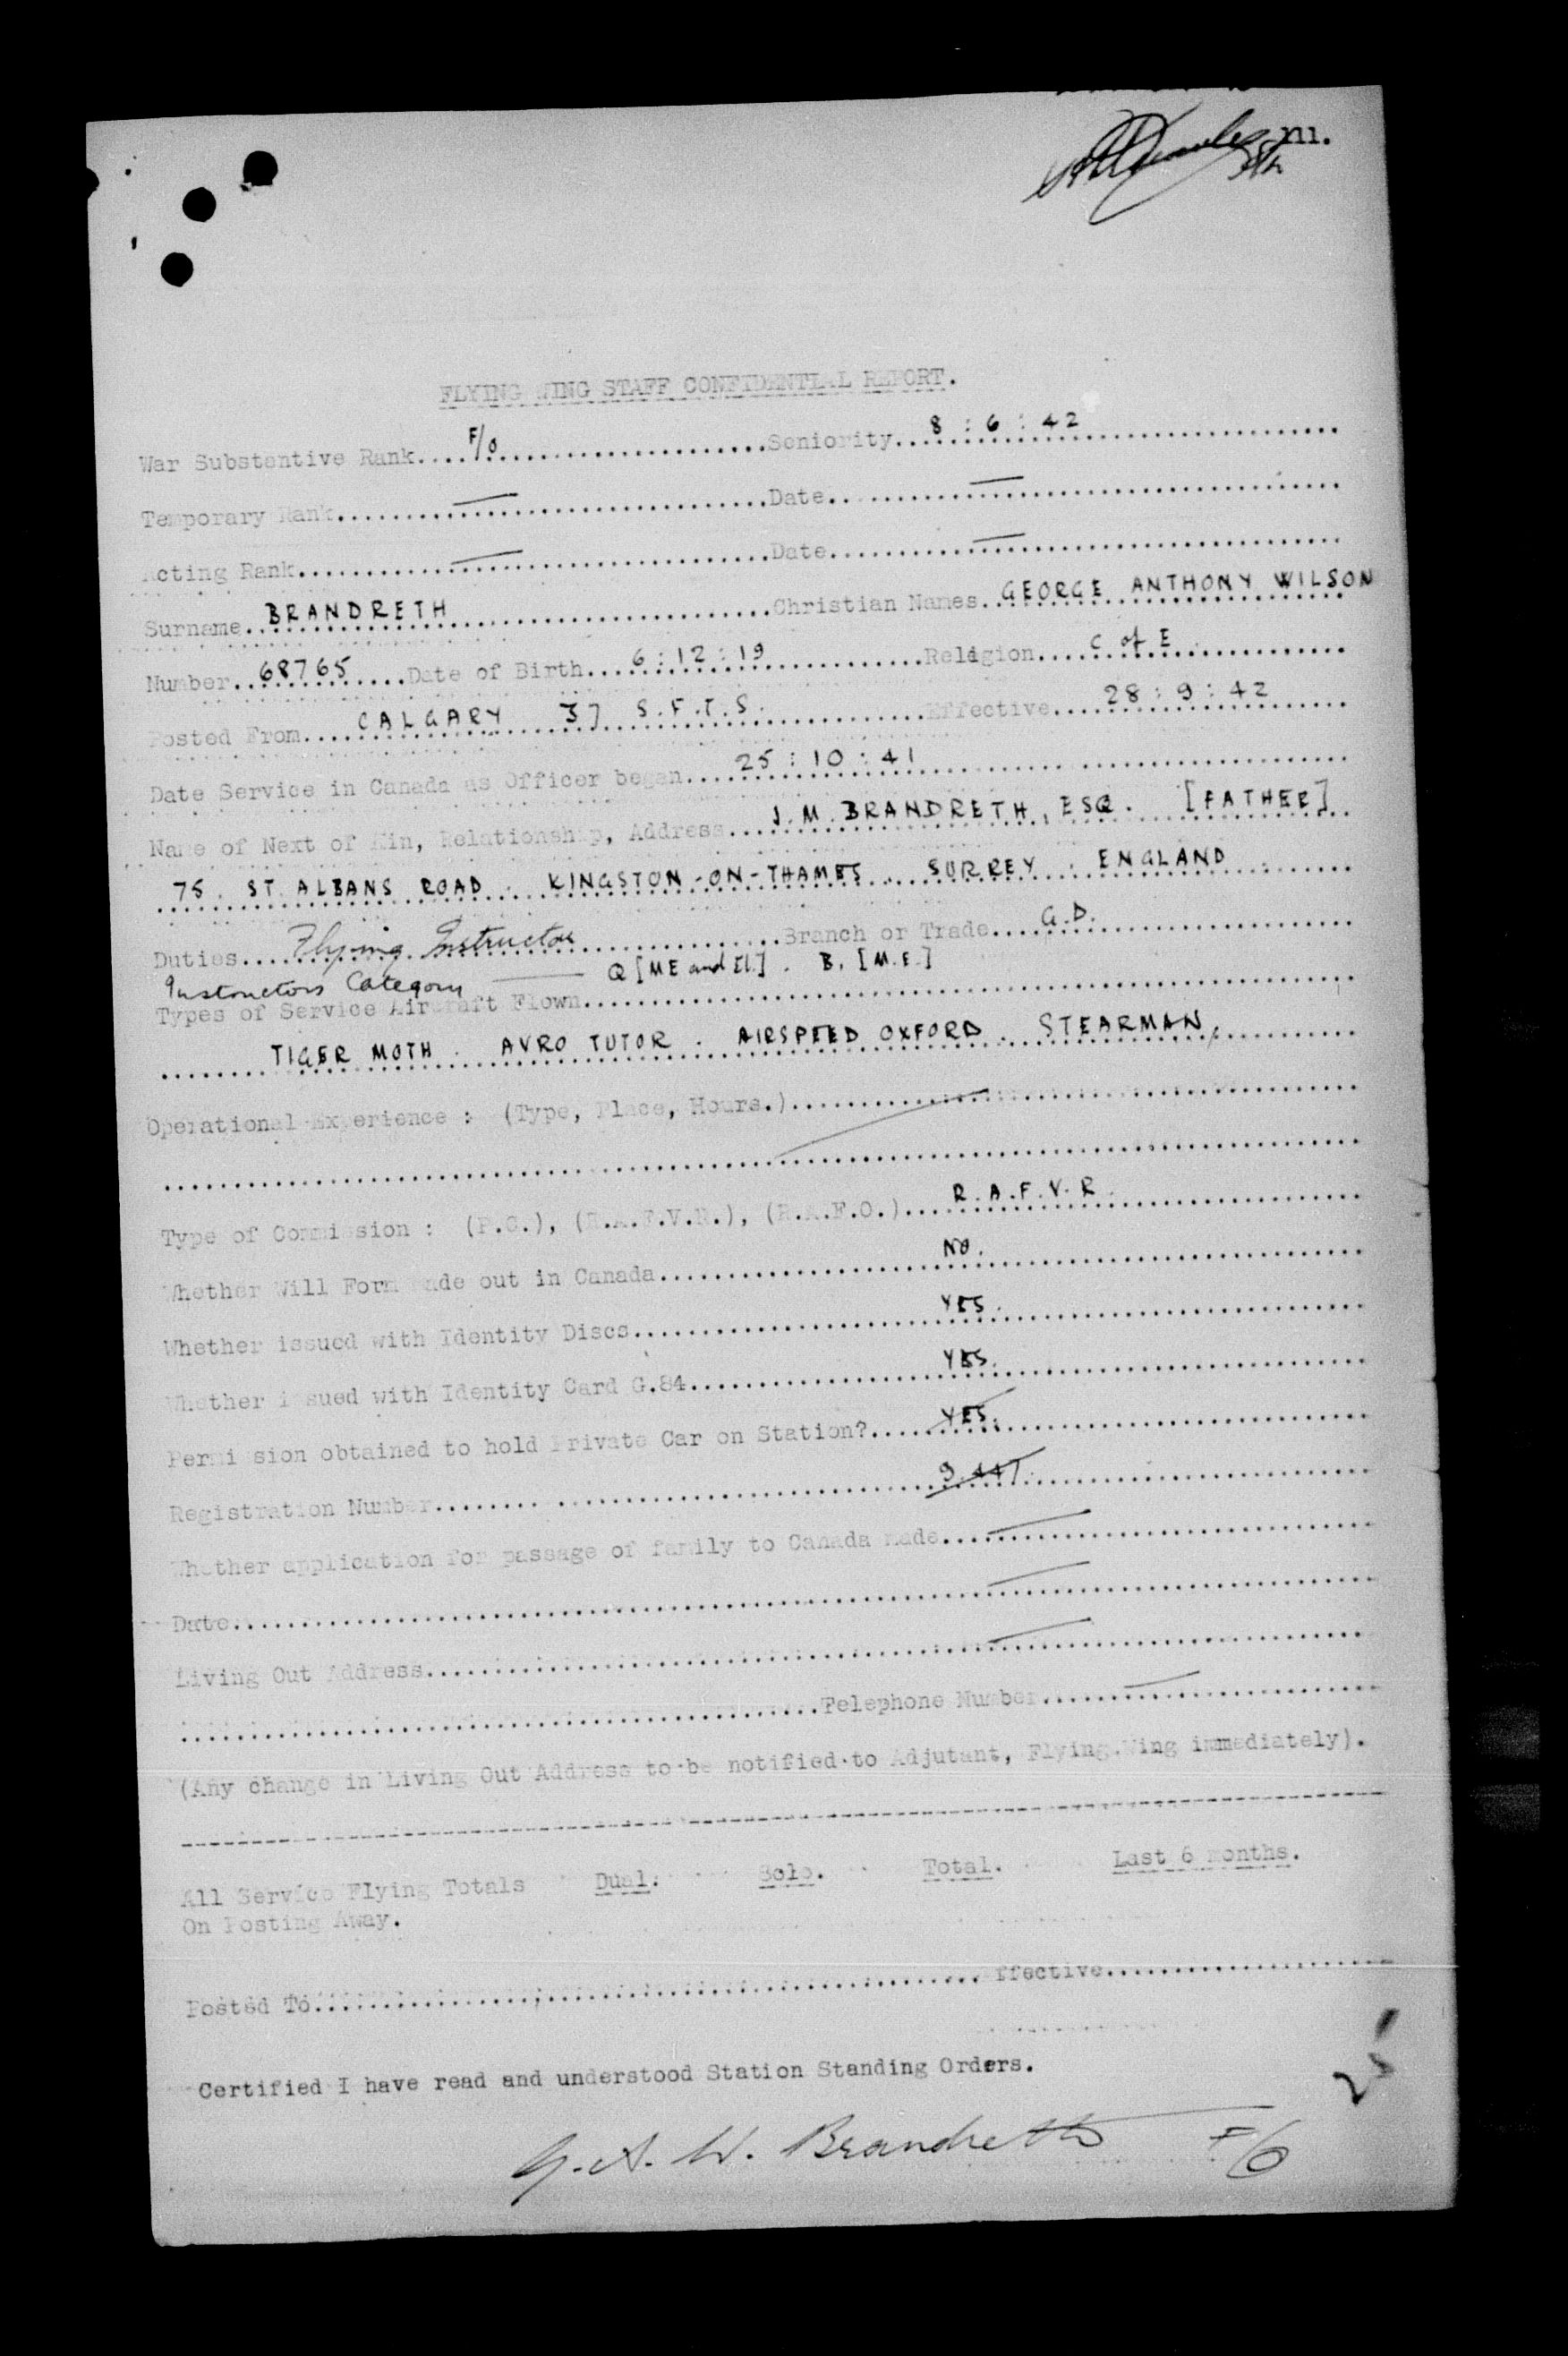 m.
FLYING WING STAFF CONFIDENTIAL REPORT.
War Substantive Rank....F/O....................Seniority..8 : 6 : 42
Temporary Rank....—....Date....—....
Acting Rank....—....Date....—....
Surname..BRANDRETH....Christian Names..GEORGE ANTHONY WILSON
Number..68765....Date of Birth...6 : 12 : 19....Religion....C of E.
Posted From....CALGARY 37 S.F.T.S.....Effective....28 : 9 : 42
Date Service in Canada as Officer began....25 : 10 : 41
Name of Next of Kin, Relationship, Address...J. M. BRANDRETH, ESQ. [FATHER]
75. ST. ALBANS ROAD. KINGSTON-ON-THAMES. SURREY. ENGLAND
Duties....Flying Instructor....Branch or Trade....G.D.
Instructors Category — Q [ME and EL]. B, [M.E.]
Types of Service Aircraft Flown....
TIGER MOTH. AVRO TUTOR. AIRSPEED OXFORD. STEARMAN.
Operational Experience : (Type, Place, Hours.)....
Type of Commission : (P.C.), (R.A.F.V.R.), (R.A.F.O.)....R.A.F.V.R.
Whether Will Form made out in Canada....NO.
Whether issued with Identity Discs....YES.
Whether issued with Identity Card G.84....YES.
Permission obtained to hold Private Car on Station?....YES.
Registration Number....9.447.
Whether application for passage of family to Canada made....—
Date....—
Living Out Address....—
....Telephone Number....—
(Any change in Living Out Address to be notified to Adjutant, Flying Wing immediately).
All Service Flying Totals Dual. Solo. Total. Last 6 months.
On Posting Away.
Posted To....Effective....
Certified I have read and understood Station Standing Orders.
G. A. W. Brandreth F/O